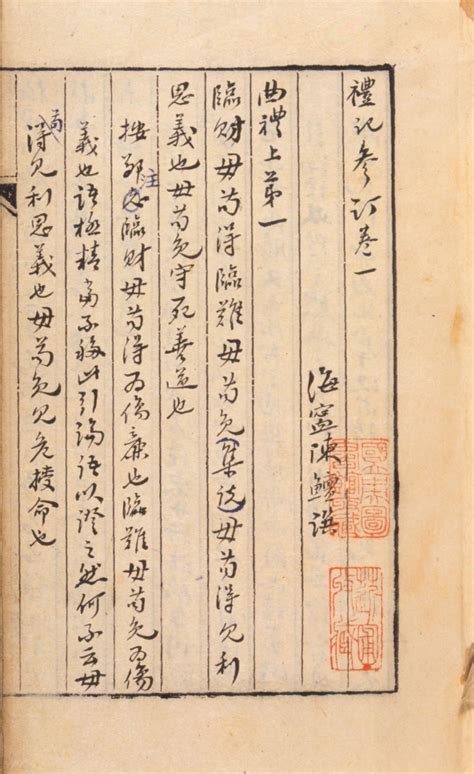 禮記參訂卷一
海寧陳鱣撰
曲禮上第一
臨財毋苟得臨難毋苟免集說毋苟得見利
思義也毋苟免守死善道也
按鄭注臨財毋苟得為傷廉也臨難毋苟免為傷
義也語極精當不移此引論語以證之然何不云毋
苟得見利思義也毋苟免見危授命也